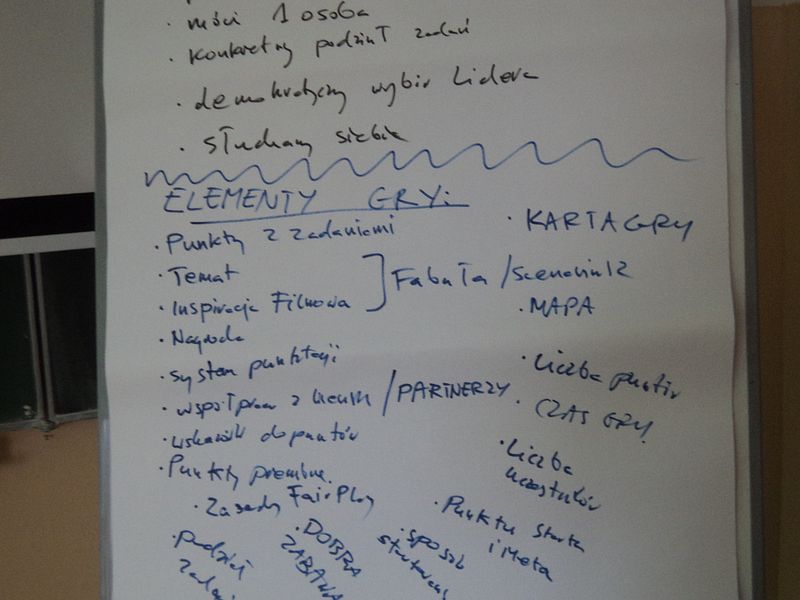 mówi 1 osoba
• konkretny podział zadań
• demokratyczny wybór lidera
• słuchamy siebie
ELEMENTY GRY:
• Punkty z zadaniami
• Temat
• Inspiracja Filmowa
Fabuła / Scenariusz
• Nagroda
• system punktacji
• współpraca z / PARTNERZY
• wskazówki do punktów
• Punkty premiowe
• Zasady Fair Play
• Podział
zadań
• DOBRA
ZABAWA
• KARTA GRY
• MAPA
• Liczba punktów
• CZAS GRY
• Liczba
uczestników
• Punktu startu
i Meta
• sposób